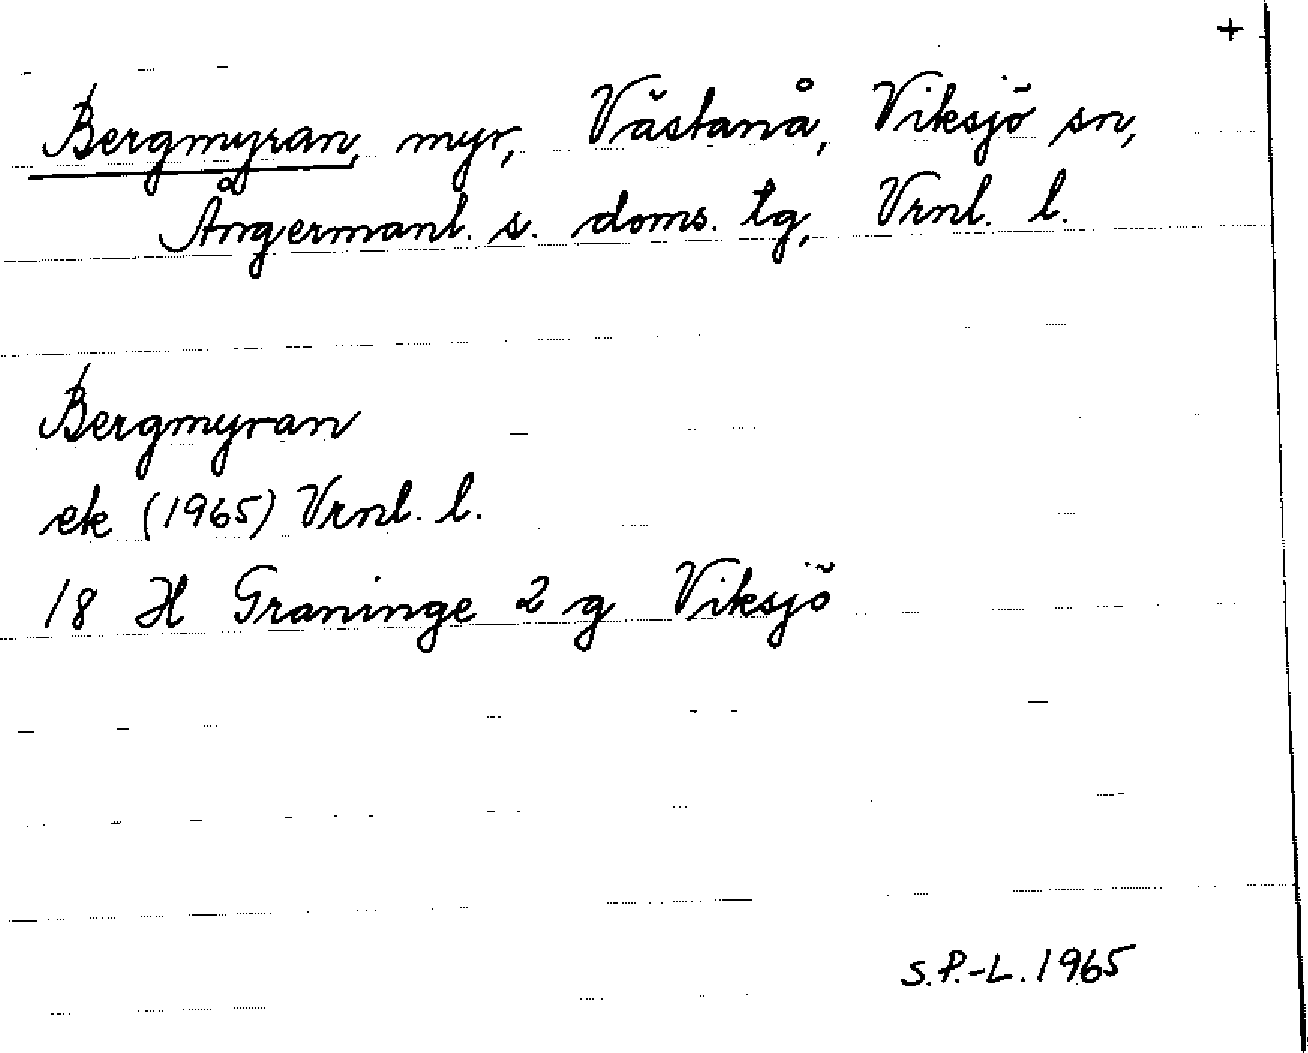 +
Bergmyran, myr, Västanå, Viksjö sn,
Ångermanl. s. doms. tg, Vrnl. l.
Bergmyran
ek (1965) Vrnl. l.
18 H Graninge 2 g Viksjö
S.P.-L. 1965